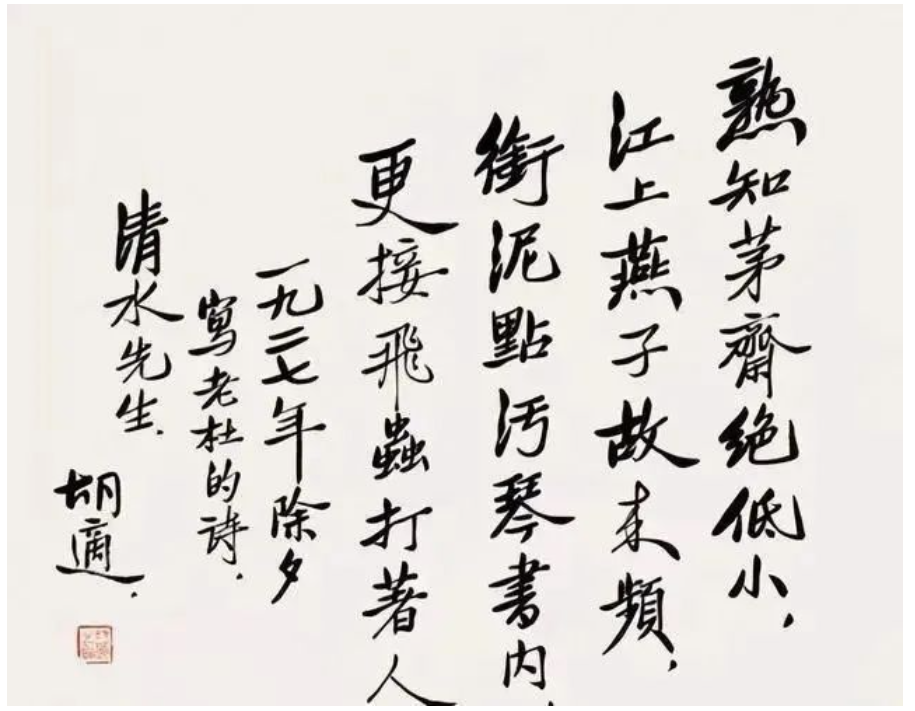 熟知茅齋絶低小，
江上燕子故来頻，
銜泥點汚琴書内，
更接飛蟲打著人
一九二七年除夕
寫老杜的詩，
清水先生．
胡適．